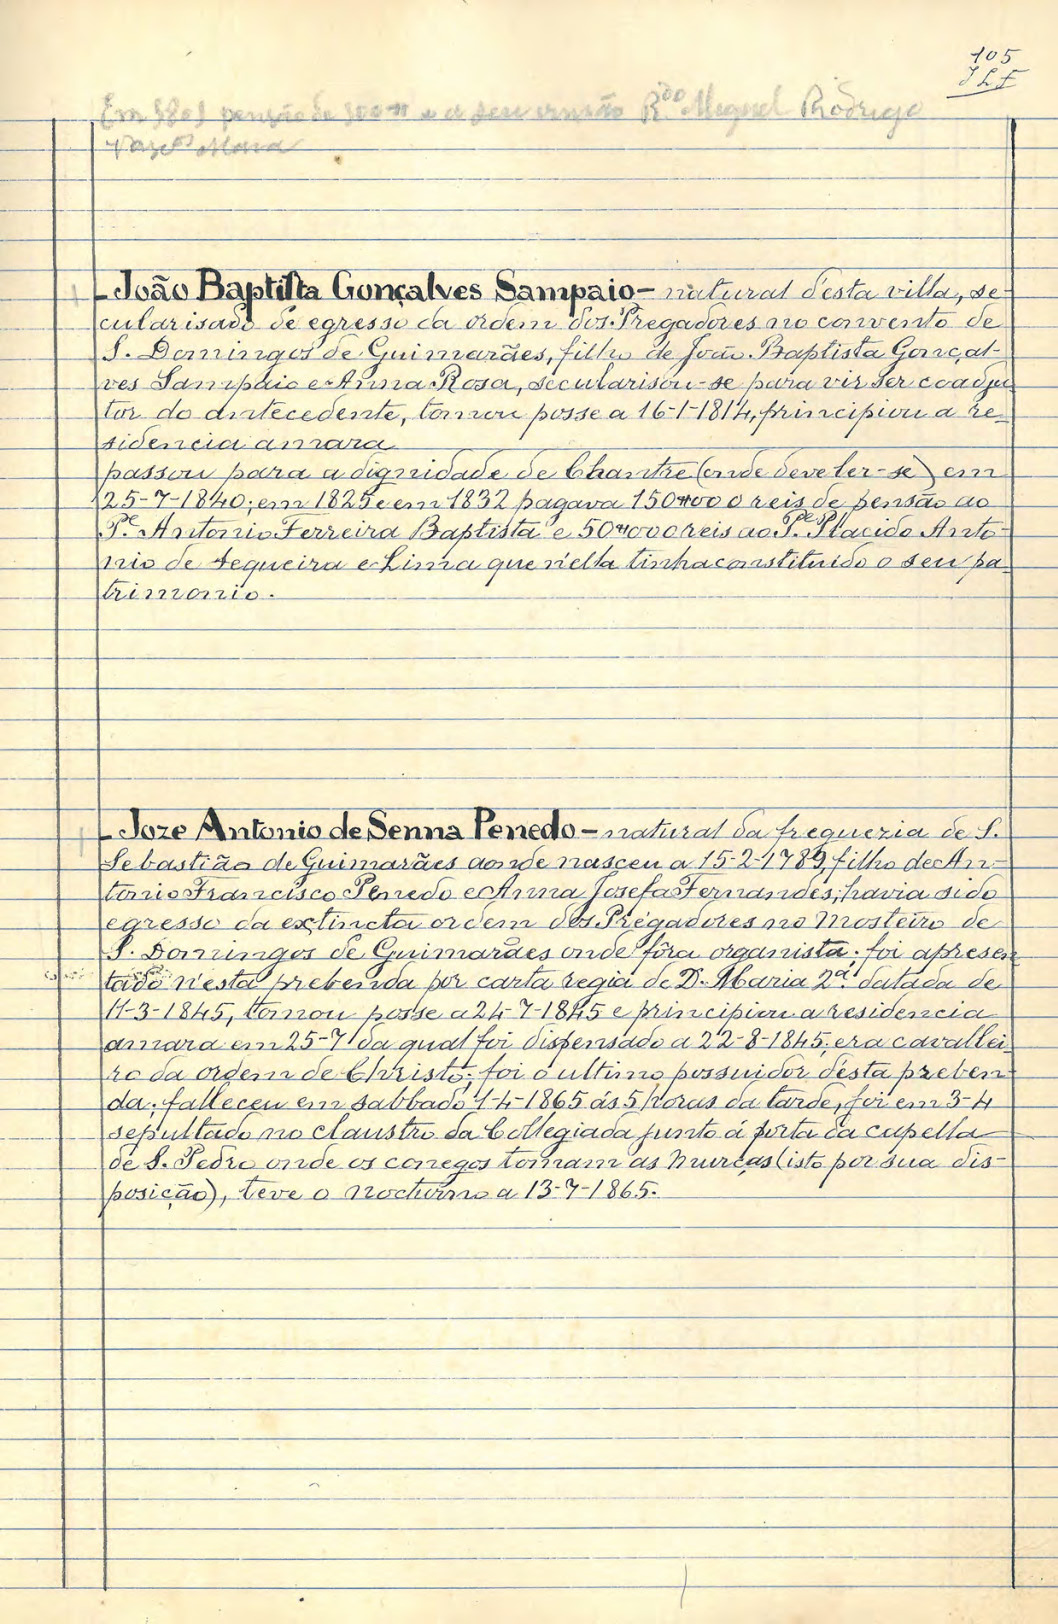 105
JLF
Em 1801 pensão de 300# a seu irmão R.do Miguel Rodrigo
Vaz
- João Baptista Gonçalves Sampaio - natural d'esta villa, se-
cularisado de egresso da ordem dos Pregadores no convento de
S. Domingos de Guimarães, filho de João Baptista Gonçal-
ves Sampaio e Anna Rosa, secularisou-se para vir ser coadju
tor do antecedente, tomou posse a 16-1-1814, principiou a re-
sidencia amara
passou para a dignidade de Chantre (onde deve ler-se) em
25-7-1840; em 1825 e em 1832 pagava 150#000 reis de pensão ao
P.e Antonio Ferreira Baptista e 50#000 reis ao P.e Placido Anto-
nio de Sequeira e Lima que n'ella tinha constituido o seu pa-
trimonio.
- Joze Antonio de Senna Penedo - natural da freguezia de S.
Sebastião de Guimarães aonde nasceu a 15-2-1789, filho de An-
tonio Francisco Penedo e Anna Josefa Fernandes; havia sido
egresso da extincta ordem dos Prégadores no Mosteiro de
S. Domingos de Guimarães onde fôra organista; foi apresen
tado n'esta prebenda por carta regia de D. Maria 2ª datada de
11-3-1845, tomou posse a 24-7-1845 e principiou a residencia
amara em 25-7 da qual foi dispensado a 22-8-1845; era cavallei-
ro da ordem de Christo; foi o ultimo possuidor d'esta preben-
da; falleceu em sabbado 1-4-1865 ás 5 horas da tarde, foi em 3-4
sepultado no claustro da Collegiada junto á porta da capella
de S. Pedro onde os conegos tomam as murças (isto por sua dis-
posição), teve o nocturno a 13-7-1865.